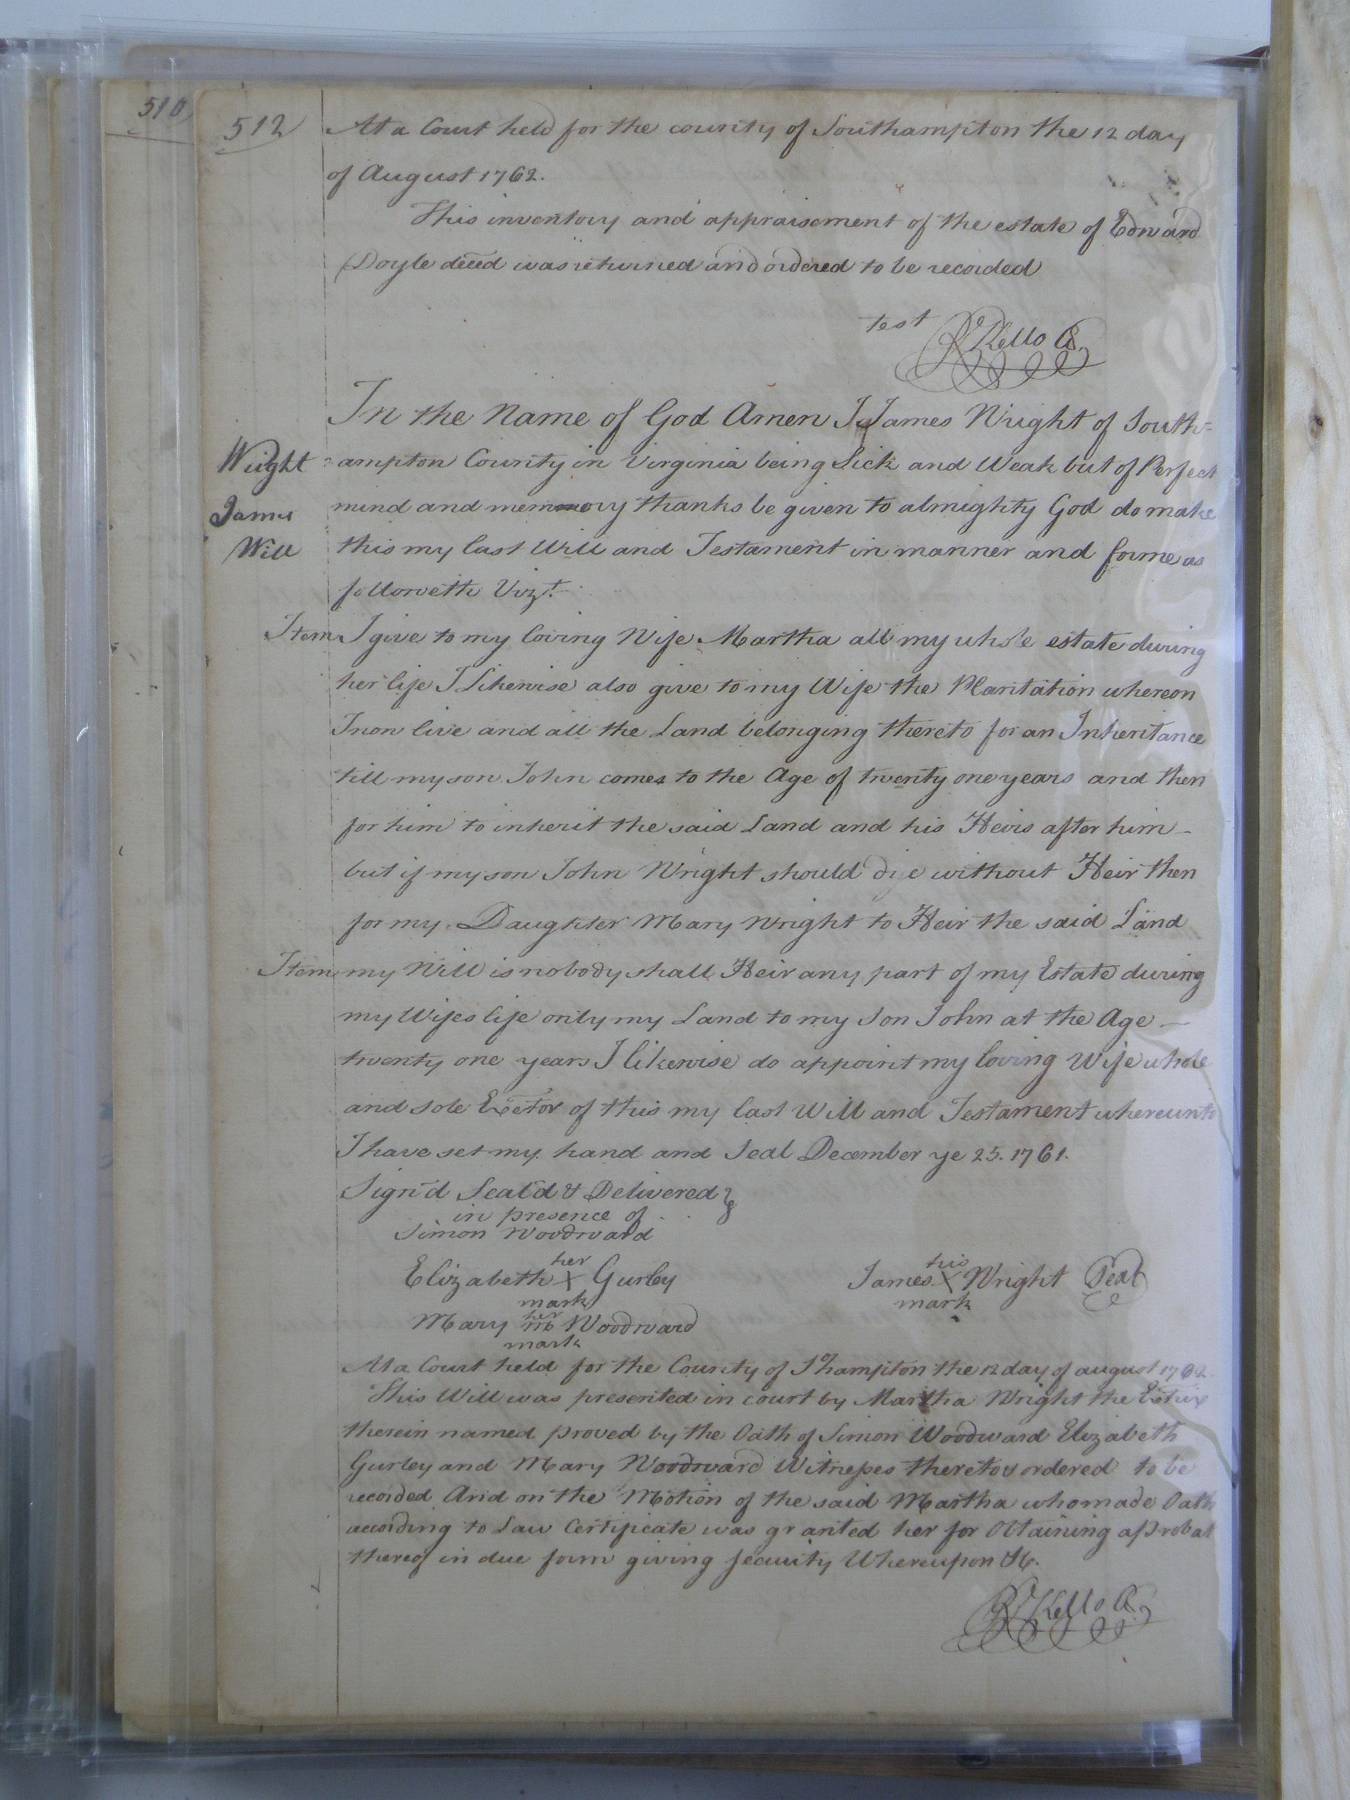 510
512
At a Court held for the county of Southampton the 12 day
of August 1762.
This inventory and appraisement of the estate of Edward
Doyle deced was returned and ordered to be recorded
test
Rd Kello C.
In the Name of God Amen I James Wright of South-
Wright
ampton County in Virginia being Sick and Weak but of Perfect
James
mind and memmory thanks be given to almighty God do make
Will
this my last Will and Testament in manner and forme as
followeth Vizt.
Item I give to my loving Wife Martha all my whole estate during
her life I Likewise also give to my Wife the Plantation whereon
I now live and all the Land belonging thereto for an Inheritance
till my son John comes to the Age of twenty one years and then
for him to inherit the said Land and his Heirs after him -
but if my son John Wright should dye without Heir then
for my Daughter Mary Wright to Heir the said Land
Item my Will is nobody shall Heir any part of my Estate during
my Wifes life only my Land to my Son John at the Age -
twenty one years I likewise do appoint my loving Wife whole
and sole Exetor of this my last Will and Testament whereunto
I have set my hand and Seal December ye 25. 1761.
Sign'd Seal'd & Delivered
in presence of
Simon Woodward
her
Elizabeth X Gurley
mark
his
James X Wright Seal
mark
her
Mary m Woodward
mark
At a Court held for the County of Shampton the 12 day of august 1762
This Will was presented in court by Martha Wright the Extrix
therein named proved by the Oath of Simon Woodward Elizabeth
Gurley and Mary Woodward Witnesses thereto & ordered to be
recorded And on the Motion of the said Martha who made Oath
according to Law Certificate was granted her for Obtaining a Probat
thereof in due form giving security Whereupon &c.
Rd Kello C.